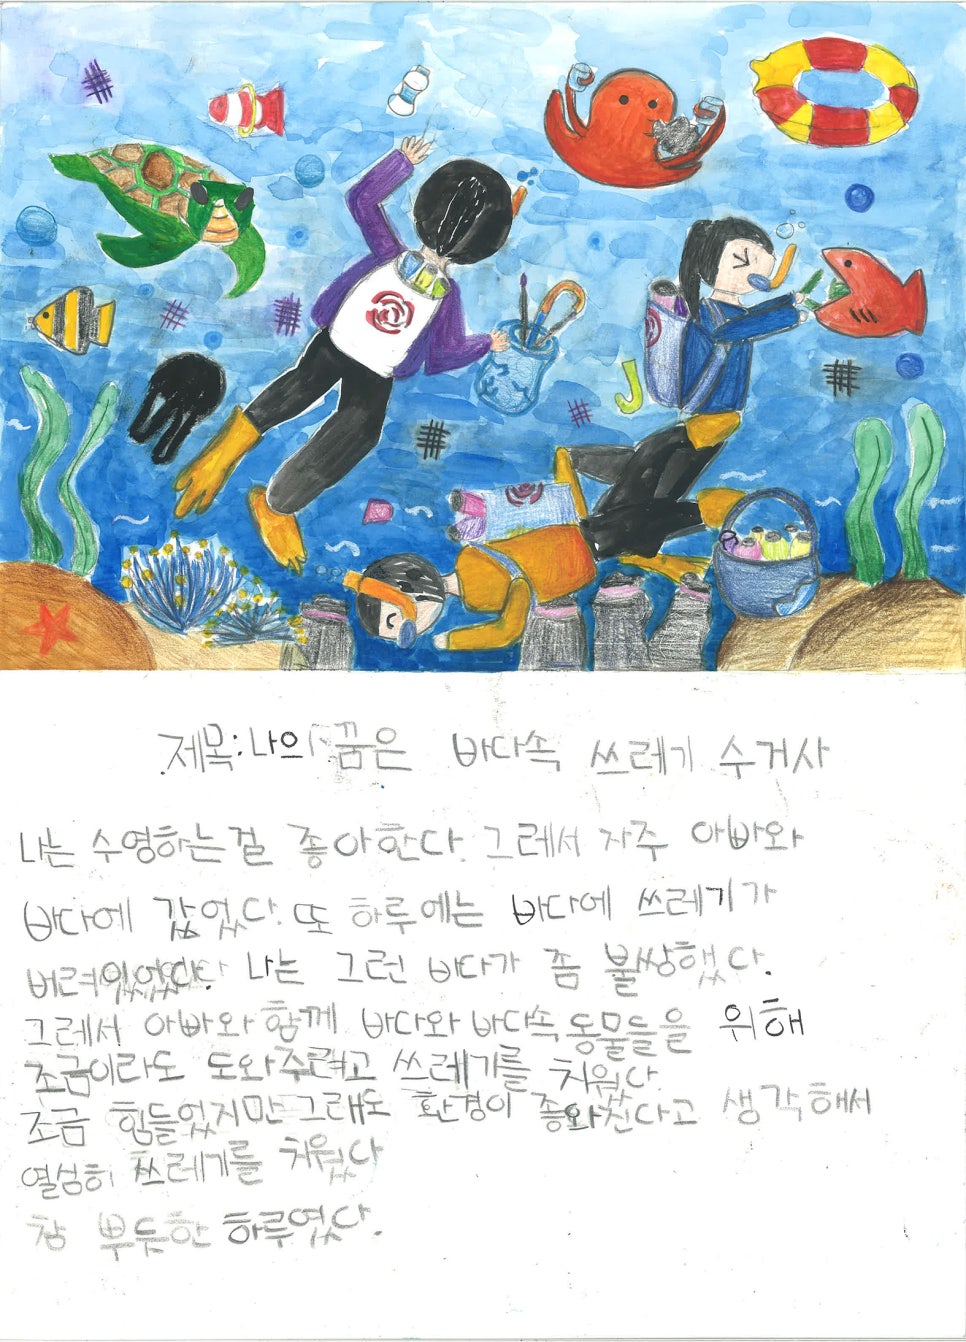 제목:나의 꿈은 바다속 쓰레기 수거사
나는 수영하는걸 좋아한다. 그레서 자주 아빠와
바다에 갔었다. 또 하루에는 바다에 쓰레기가
버려있었다. 나는 그런 바다가 좀 불쌍했다.
그레서 아빠와 함께 바다와 바다속 동물들을 위해
조금이라도 도와주려고 쓰레기를 치웠다.
조금 힘들었지만 그래도 환경이 좋와진다고 생각해서
열심히 쓰레기를 치웠다
참 뿌듯한 하루였다.